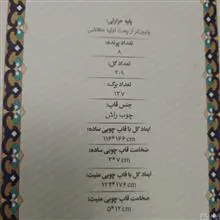 پایه حرارتی:
پایین‌تر از پخت اولیه سفالی
تعداد پرنده:
۸
تعداد گل:
۲۰۹
تعداد برگ:
۱۲۷
جنس قاب:
چوب راش
ابعاد کل با قاب چوبی ساده:
۱۱۶*۱۶۶cm
ضخامت قاب چوبی ساده:
۳*۷cm
ابعاد کل با قاب چوبی منبت:
۱۲۴*۱۷۶cm
ضخامت قاب چوبی منبت:
۵*۱۲cm